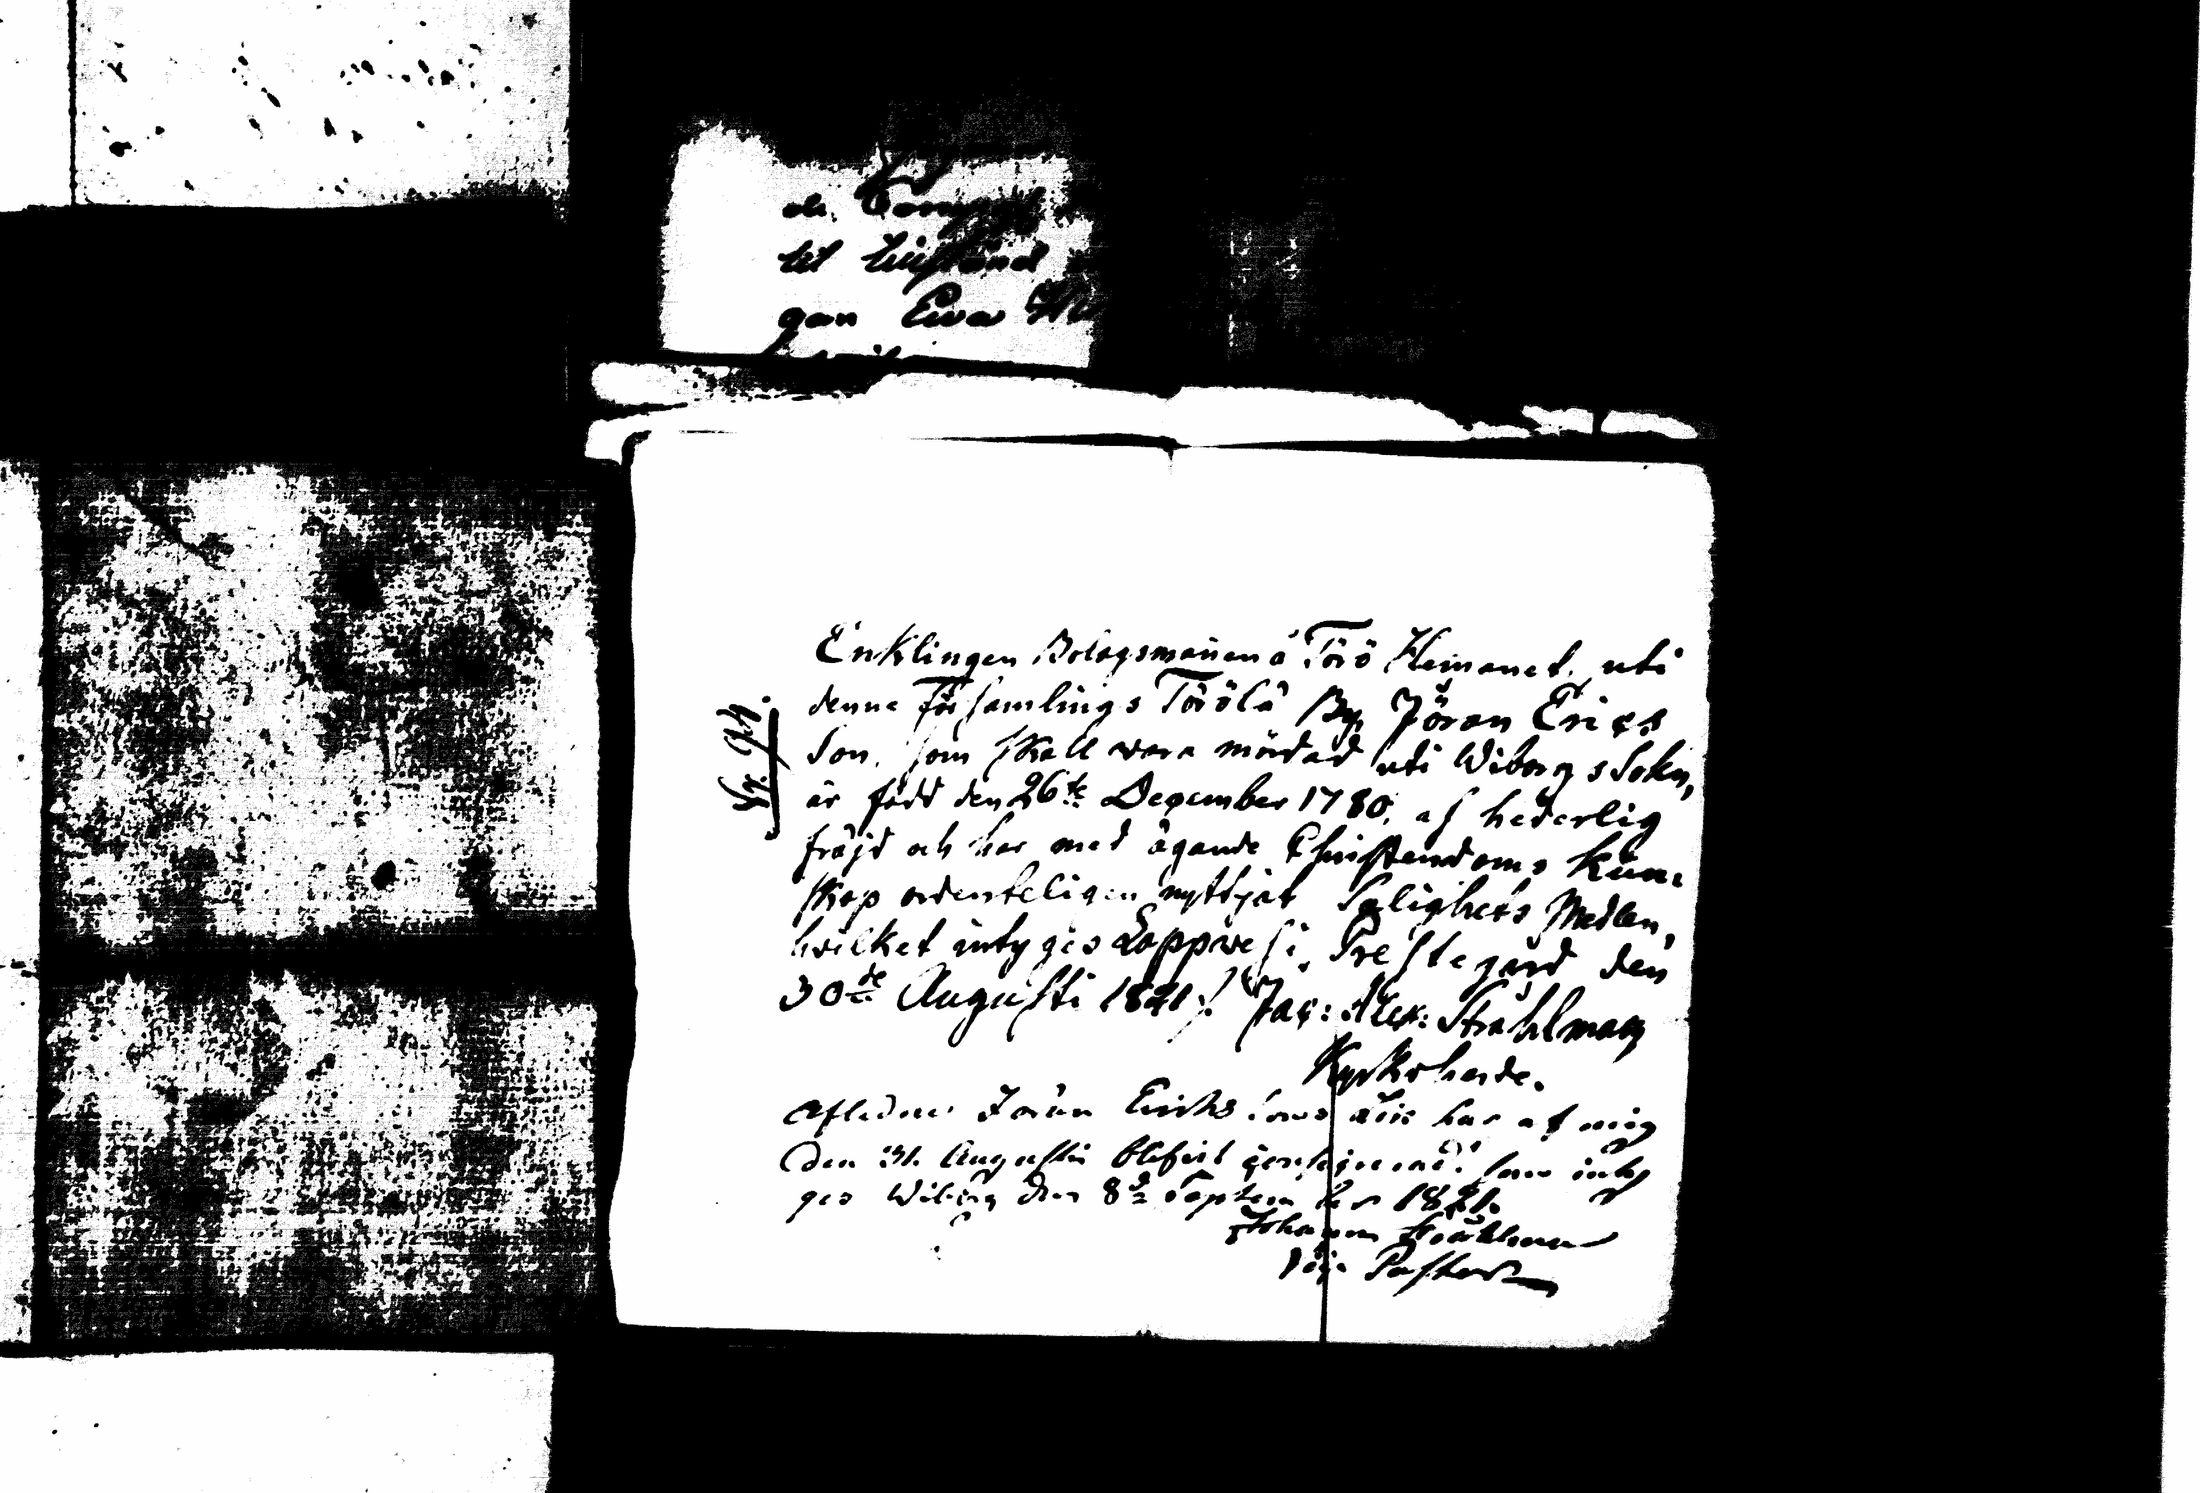 gan Ewa
Enklingen Bolagsmannen å Törö Hemanet, uti
denne Församlings Törölä By, Jöran Erics
Son, som skall vara mördad uti Wiborgs Sokn,
är född den 26te December 1780, af hederlig
fräjd och har med ägande Christendoms kun-
skap ordenteligen nyttjat Salighets Medlen,
hvilket intygas Lappvesi Prestegård den
30de Augusti 1821. Jac: Alex: Stråhlman
Kyrkoherde.
Aflidne Joran Erichs Sons lik har af mig
den 31 Augusti blifvit som inty
ges Wiborg den 8de September 1821.
Johann Stråhlman
Pastor